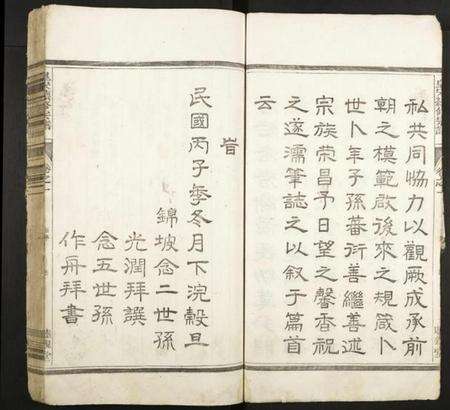 私共同恊力以觀厥成承前
朝之模範啟後來之規箴卜
世卜年子孫蕃衍善繼善述
宗族荣昌予日望之馨香祝
之遂濡筆誌之以叙于篇首
云
旹
民國丙子季冬月下浣穀旦
錦坡念二世孫
光潤拜譔
念五世孫
作舟拜書